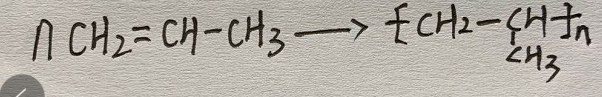 n CH2=CH-CH3 ⟶ [CH2-CH]n
CH3